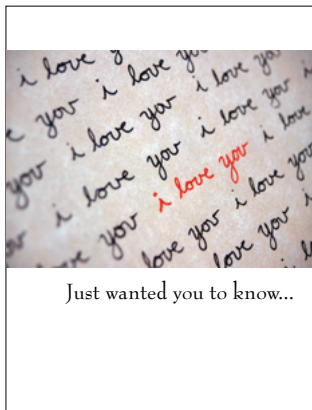 i love you i love
you i love you i
i love you i love you
you i love you i love you
i love you i love you i
you i love you i love
love you i love you
you i love you i
love you i lo
Just wanted you to know...